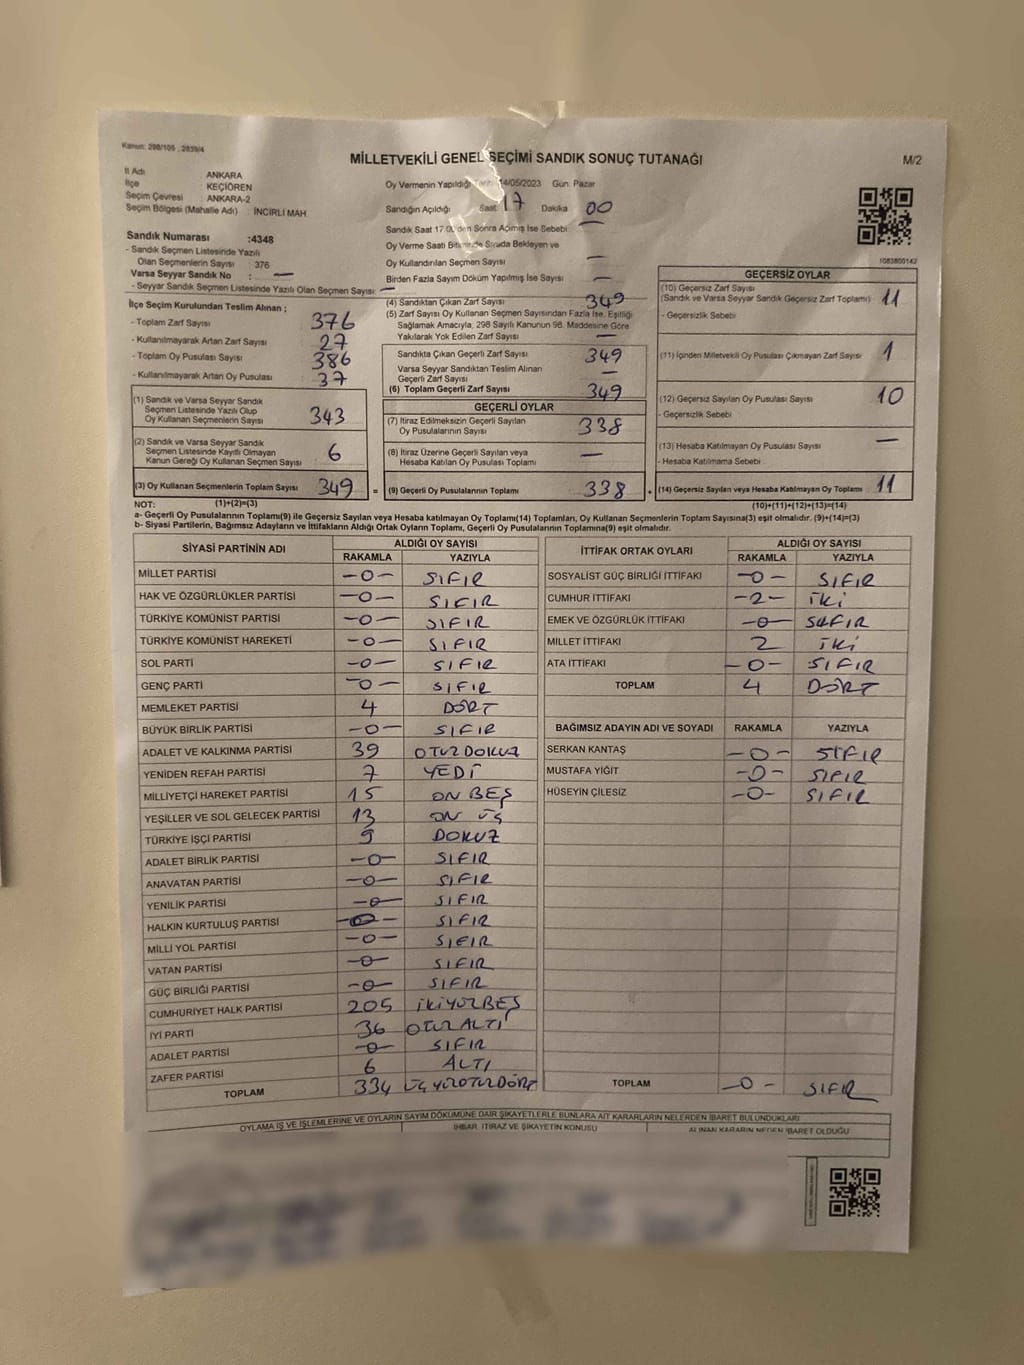 Kanun: 298/105 , 2839/4
MİLLETVEKİLİ GENEL SEÇİMİ SANDIK SONUÇ TUTANAĞI
M/2
İl Adı ANKARA
İlçe KEÇİÖREN
Seçim Çevresi ANKARA-2
Seçim Bölgesi (Mahalle Adı) : İNCİRLİ MAH.
Oy Vermenin Yapıldığı 14/05/2023 Gün: Pazar
Sandığın Açıldığı Saat 17 Dakika 00
Sandık Saat 17.00'den Sonra Açılmış İse Sebebi —
Oy Verme Saati Bitiminde Sırada Bekleyen ve
Oy Kullandırılan Seçmen Sayısı —
Birden Fazla Sayım Döküm Yapılmış İse Sayısı —
1083800142
Sandık Numarası :4348
- Sandık Seçmen Listesinde Yazılı
Olan Seçmenlerin Sayısı : 376
Varsa Seyyar Sandık No : —
- Seyyar Sandık Seçmen Listesinde Yazılı Olan Seçmen Sayısı: —
İlçe Seçim Kurulundan Teslim Alınan ;
- Toplam Zarf Sayısı 376
- Kullanılmayarak Artan Zarf Sayısı 27
- Toplam Oy Pusulası Sayısı 386
- Kullanılmayarak Artan Oy Pusulası 37
(1) Sandık ve Varsa Seyyar Sandık
Seçmen Listesinde Yazılı Olup
Oy Kullanan Seçmenlerin Sayısı 343
(2) Sandık ve Varsa Seyyar Sandık
Seçmen Listesinde Kayıtlı Olmayan
Kanun Gereği Oy Kullanan Seçmen Sayısı 6
(3) Oy Kullanan Seçmenlerin Toplam Sayısı 349 =
(4) Sandıktan Çıkan Zarf Sayısı 349
(5) Zarf Sayısı Oy Kullanan Seçmen Sayısından Fazla İse, Eşitliği
Sağlamak Amacıyla, 298 Sayılı Kanunun 98. Maddesine Göre
Yakılarak Yok Edilen Zarf Sayısı —
Sandıkta Çıkan Geçerli Zarf Sayısı 349
Varsa Seyyar Sandıktan Teslim Alınan
Geçerli Zarf Sayısı —
(6) Toplam Geçerli Zarf Sayısı 349
GEÇERLİ OYLAR
(7) İtiraz Edilmeksizin Geçerli Sayılan
Oy Pusulalarının Sayısı 338
(8) İtiraz Üzerine Geçerli Sayılan veya
Hesaba Katılan Oy Pusulası Toplamı —
(9) Geçerli Oy Pusulalarının Toplamı 338
GEÇERSİZ OYLAR
(10) Geçersiz Zarf Sayısı
(Sandık ve Varsa Seyyar Sandık Geçersiz Zarf Toplamı) 11
- Geçersizlik Sebebi
(11) İçinden Milletvekili Oy Pusulası Çıkmayan Zarf Sayısı 1
(12) Geçersiz Sayılan Oy Pusulası Sayısı 10
- Geçersizlik Sebebi
(13) Hesaba Katılmayan Oy Pusulası Sayısı —
- Hesaba Katılmama Sebebi
(14) Geçersiz Sayılan veya Hesaba Katılmayan Oy Toplamı 11
NOT: (1)+(2)=(3) (10)+(11)+(12)+(13)=(14)
a- Geçerli Oy Pusulalarının Toplamı(9) ile Geçersiz Sayılan veya Hesaba katılmayan Oy Toplamı(14) Toplamları, Oy Kullanan Seçmenlerin Toplam Sayısına(3) eşit olmalıdır. (9)+(14)=(3)
b- Siyasi Partilerin, Bağımsız Adayların ve İttifakların Aldığı Ortak Oyların Toplamı, Geçerli Oy Pusulalarının Toplamına(9) eşit olmalıdır.
SİYASİ PARTİNİN ADI ALDIĞI OY SAYISI
RAKAMLA YAZIYLA
MİLLET PARTİSİ —0— SIFIR
HAK VE ÖZGÜRLÜKLER PARTİSİ —0— SIFIR
TÜRKİYE KOMÜNİST PARTİSİ —0— SIFIR
TÜRKİYE KOMÜNİST HAREKETİ —0— SIFIR
SOL PARTİ —0— SIFIR
GENÇ PARTİ —0— SIFIR
MEMLEKET PARTİSİ 4 DÖRT
BÜYÜK BİRLİK PARTİSİ —0— SIFIR
ADALET VE KALKINMA PARTİSİ 39 OTUZ DOKUZ
YENİDEN REFAH PARTİSİ 7 YEDİ
MİLLİYETÇİ HAREKET PARTİSİ 15 ON BEŞ
YEŞİLLER VE SOL GELECEK PARTİSİ 13 ON ÜÇ
TÜRKİYE İŞÇİ PARTİSİ 9 DOKUZ
ADALET BİRLİK PARTİSİ —0— SIFIR
ANAVATAN PARTİSİ —0— SIFIR
YENİLİK PARTİSİ —0— SIFIR
HALKIN KURTULUŞ PARTİSİ —0— SIFIR
MİLLİ YOL PARTİSİ —0— SIFIR
VATAN PARTİSİ —0— SIFIR
GÜÇ BİRLİĞİ PARTİSİ —0— SIFIR
CUMHURİYET HALK PARTİSİ 205 İKİYÜZBEŞ
İYİ PARTİ 36 OTUZ ALTI
ADALET PARTİSİ —0— SIFIR
ZAFER PARTİSİ 6 ALTI
TOPLAM 334 ÜÇ YÜZ OTUZ DÖRT
İTTİFAK ORTAK OYLARI ALDIĞI OY SAYISI
RAKAMLA YAZIYLA
SOSYALİST GÜÇ BİRLİĞİ İTTİFAKI —0— SIFIR
CUMHUR İTTİFAKI —2— İKİ
EMEK VE ÖZGÜRLÜK İTTİFAKI —0— SIFIR
MİLLET İTTİFAKI 2 İKİ
ATA İTTİFAKI —0— SIFIR
TOPLAM 4 DÖRT
BAĞIMSIZ ADAYIN ADI VE SOYADI RAKAMLA YAZIYLA
SERKAN KANTAŞ —0— SIFIR
MUSTAFA YİĞİT —0— SIFIR
HÜSEYİN ÇİLESİZ —0— SIFIR
TOPLAM —0— SIFIR
OYLAMA İŞ VE İŞLEMLERİNE VE OYLARIN SAYIM DÖKÜMÜNE DAİR ŞİKAYETLERLE BUNLARA AİT KARARLARIN NELERDEN İBARET BULUNDUKLARI
İHBAR, İTİRAZ VE ŞİKAYETİN KONUSU
ALINAN KARARIN NEDEN İBARET OLDUĞU